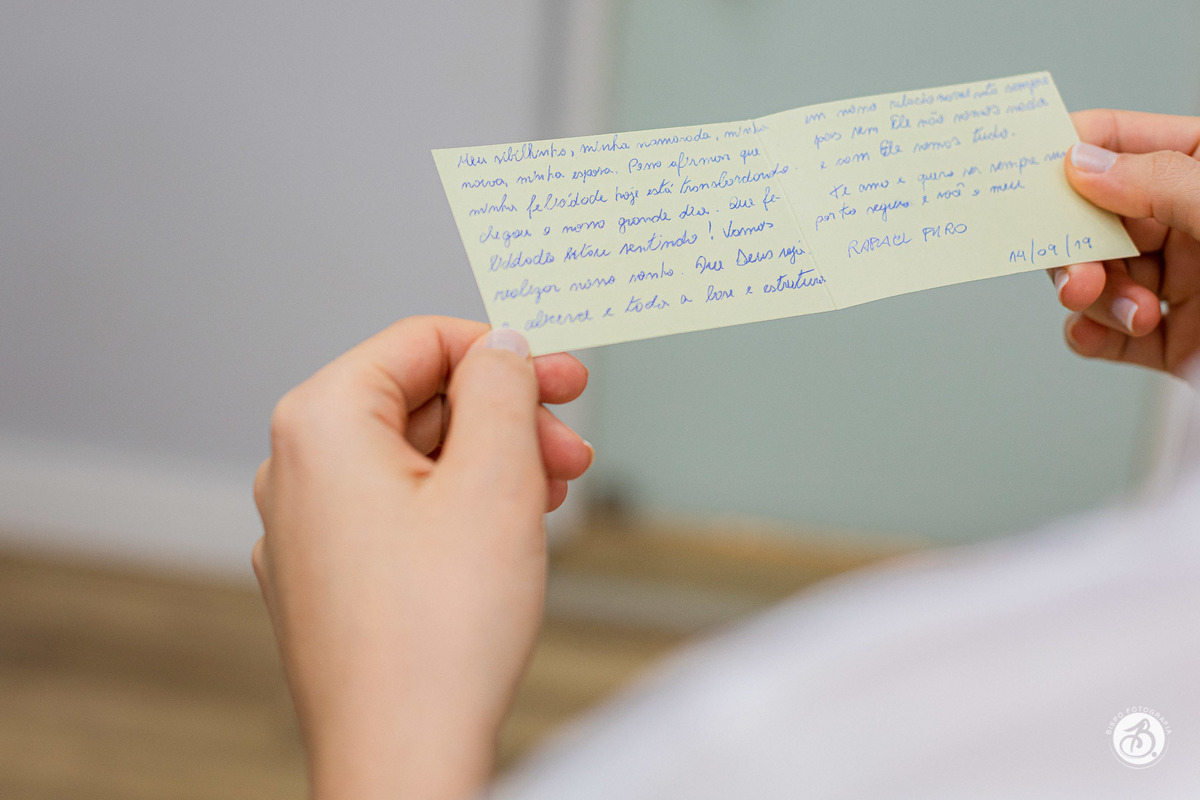 Meu , minha namorada, minha
noiva, minha esposa. Posso afirmar que
minha felicidade hoje está transbordando.
chegou o nosso grande dia. Que fe-
licidade estou sentindo! Vamos
realizar nosso sonho. Que Deus seja
o alicerce e toda a base e estrutura
em nosso relacionamento sempre
pois sem Ele não somos nada
e com Ele somos tudo.
Te amo e quero ser sempre seu
porto seguro e você o meu
RAFAEL
14/09/19
BISPO FOTOGRAFIA
B.